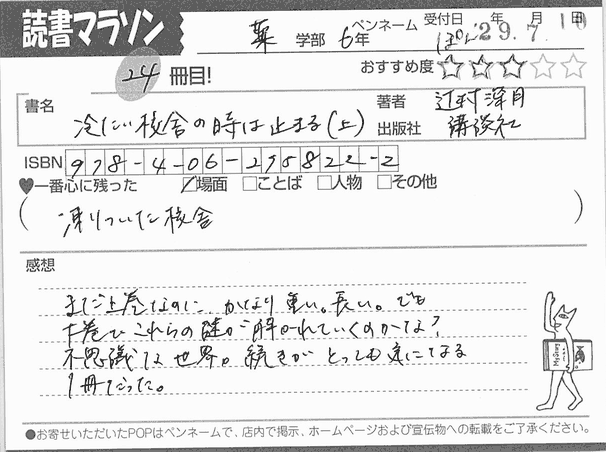 読書マラソン
薬 学部 6年 ペンネーム 受付日 年 月 日
29.7.10
24 冊目!
おすすめ度 ☆☆☆☆☆
書名 冷たい校舎の時は止まる(上)
著者 辻村深月
出版社 講談社
ISBN 978-4-06-275822-2
♥一番心に残った ☑場面 □ことば □人物 □その他
(凍りついた校舎)
感想
まだ上巻なのに、かなり重い。長い。でも
下巻でこれらの謎が解かれていくのかな?
不思議な世界。続きがとっても気になる
1冊だった。
●お寄せいただいたPOPはペンネームで、店内で掲示、ホームページおよび宣伝物への転載をご了承ください。